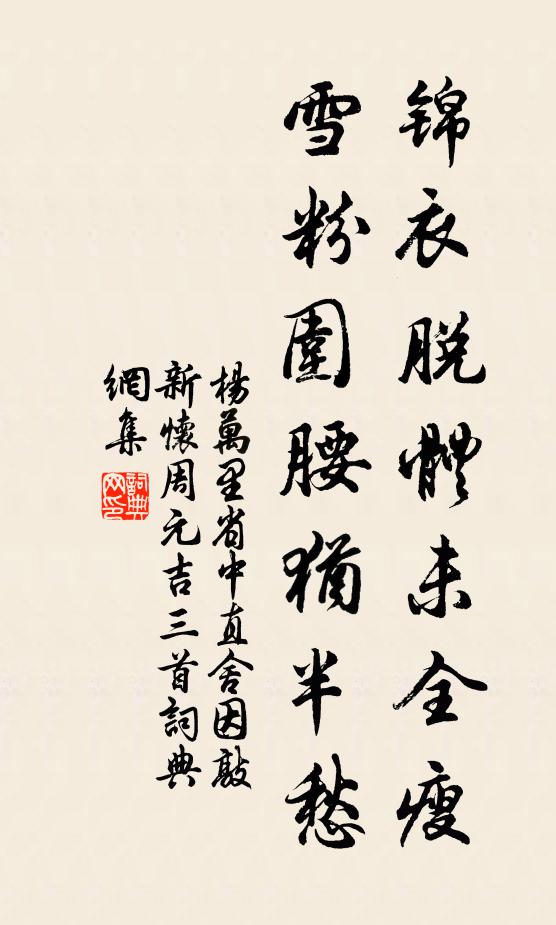 锦衣脱體未全瘦
雪粉圍腰猶半愁
楊萬里省中直舍因敲
新懷周元吉三首詞典
網集
詞典
网印